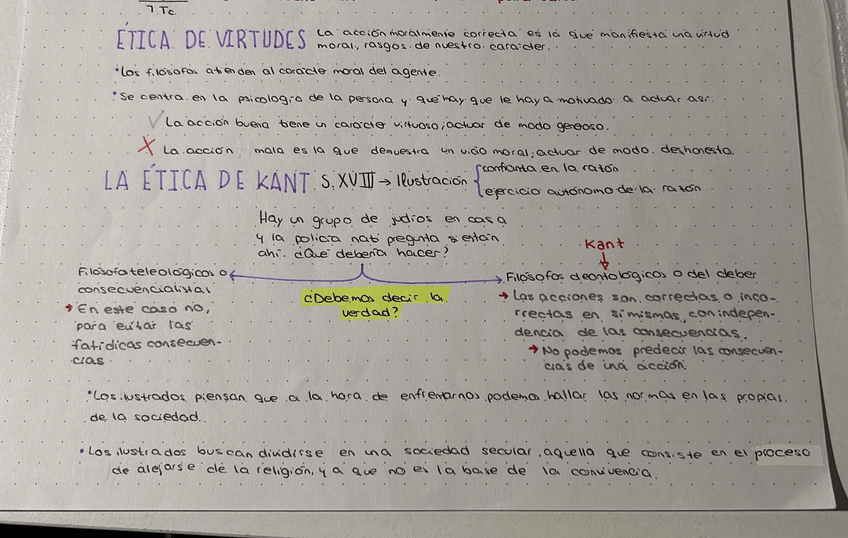 7. Tc.
ÉTICA DE VIRTUDES La acción moralmente correcta es la que manifiesta una virtud
moral, rasgos de nuestro carácter.
• Los filósofos atienden al carácter moral del agente.
• Se centra en la psicología de la persona y que hay que le haya motivado a actuar así.
✓ La acción buena tiene un carácter virtuoso; actuar de modo generoso.
X La acción mala es la que demuestra un vicio moral; actuar de modo deshonesto.
LA ÉTICA DE KANT S. XVIII → Ilustración { confianta en la razón
ejercicio autónomo de la razón
Hay un grupo de judios en casa
y la policía nati pregunta si están
ahí. ¿Qué debería hacer?
Kant
Filósofo teleológicos o
consecuencialistas
→ En este caso no,
para evitar las
fatídicas consecuen-
cias.
¿Debemos decir la
verdad?
Filósofos deontológicos o del deber
→ Las acciones son correctas o inco-
rrectas en sí mismas, con indepen-
dencia de las consecuencias.
→ No podemos predecir las consecuen-
cias de una acción.
• Los ilustrados piensan que a la hora de enfrentarnos podemos hallar las normas en las propias
de la sociedad.
• Los ilustrados buscan dividirse en una sociedad secular, aquella que consiste en el proceso
de alejarse de la religión, ya que no es la base de la convivencia.